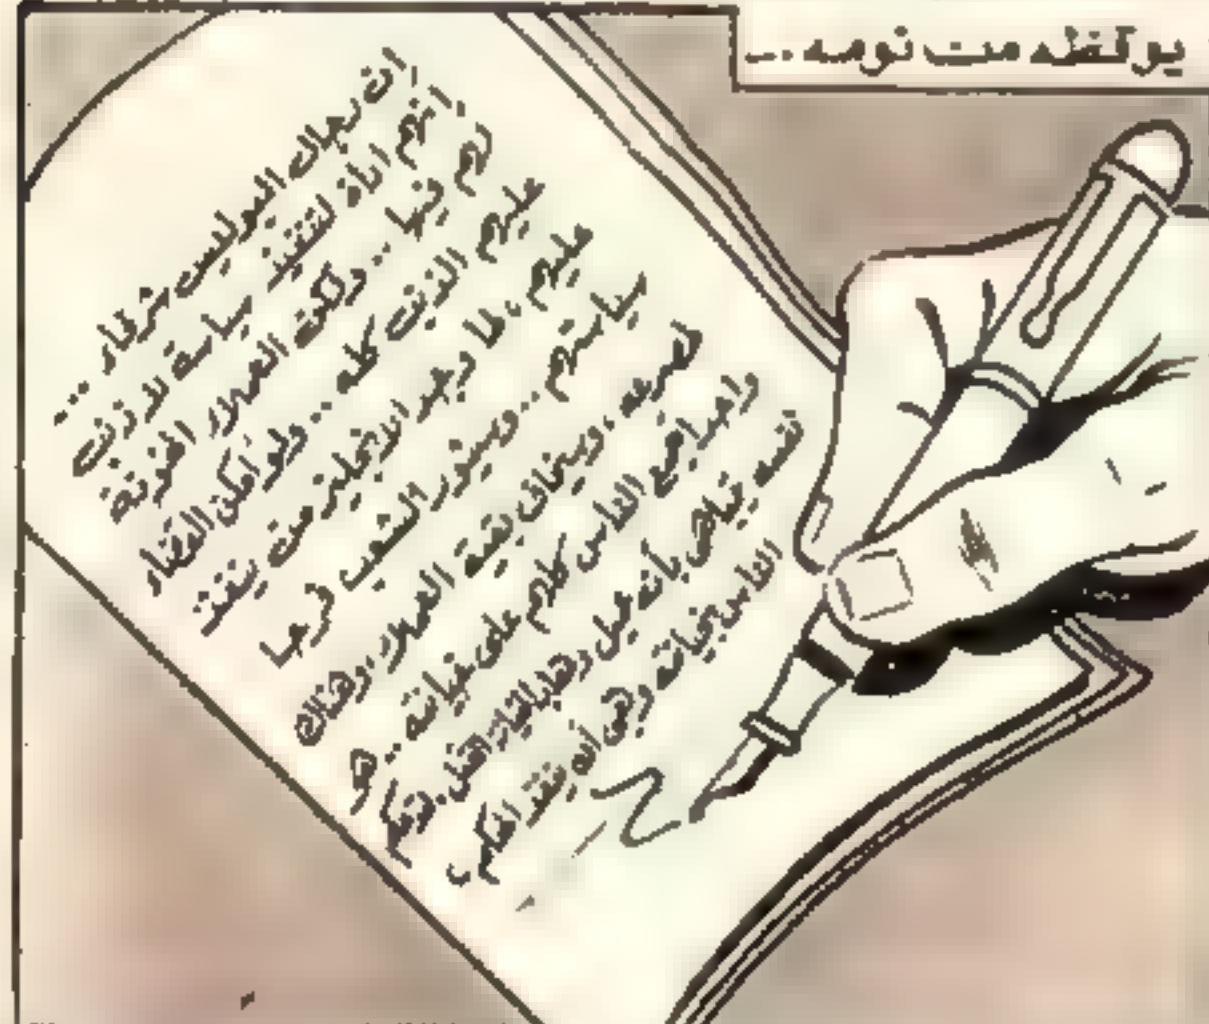 يوقظه من نومه ..
إن رجال البوليس شرفاء ...
إنهم أداة لتنفيذ سياسة لا ذنب
لهم فيها .. ولكن العملاء الخونة
عليهم الذنب كله .. ولو أمكن القضاء
عليهم ، لما وجد الإنجليز من ينفذ
سياستهم .. وسيثور الشعب فرحا
لمصرعه ، وسيخاف بقية العملاء ، وهناك
واحد أجمع الناس كلهم على خيانته .. هو
نفسه يباهى بأنه عميل وهدد
الناس بخيانته وهى أنه ينفذ الحكم